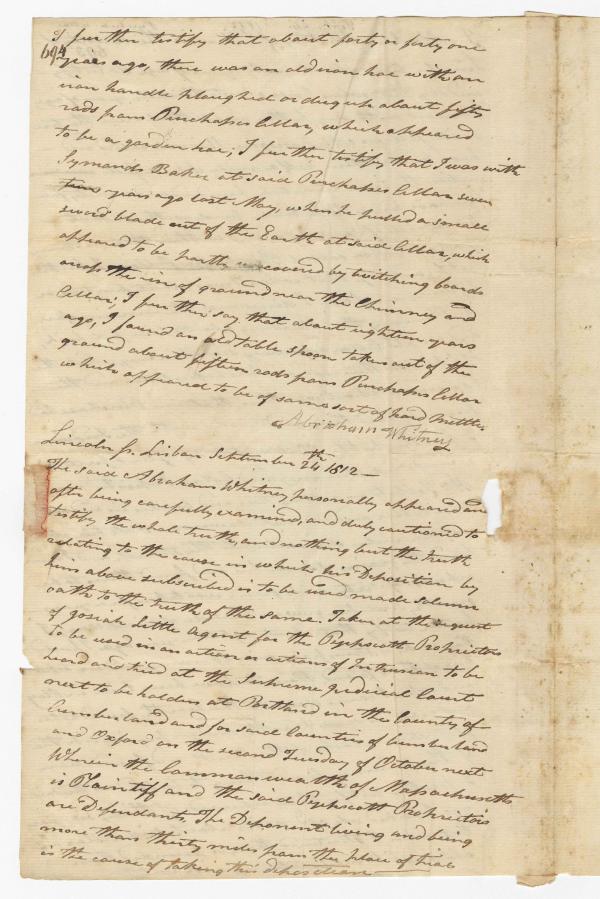 I further testify that about forty or forty one
694
years ago, there was an old iron hoe with an
iron handle ploughed or dug up about fifty
rods from Purchases Cellar, which appeared
to be a garden hoe; I further testify that I was with
Symonds Baker at said Purchases Cellar seven
years ago last May, when he pulled a small
sword blade out of the Earth at said Cellar, which
appeared to be partly uncovered by twitching boards
across the rim of ground near the Chimney and
Cellar; I further say that about eighteen years
ago, I found an old table spoon taken out of the
ground about fifteen rods from Purchases Cellar
which appeared to be of some sort of hard mettle.
Abraham Whitney
Lincoln Ss. Lisbon September 24th 1812—
The said Abraham Whitney personally appeared and
after being carefully examined, and duly cautioned to
testify the whole truth, and nothing but the truth
relating to the cause in which his Deposition by
him above subscribed is to be used made solemn
oath to the truth of the same. Taken at the request
of Josiah Little Agent for the Pejepscott Proprietors
to be used in an action or actions of Intrusion to be
heard and tried at the Supreme Judicial Court
next to be holden at Portland in the County of
Cumberland and for said Counties of Cumberland
and Oxford on the second Tuesday of October next
Wherein the Commonwealth of Massachusetts
is Plaintiff and the said Pejepscott Proprietors
are Defendants. The Deponent living and being
more than thirty miles from the place of trial
is the cause of taking this deposition